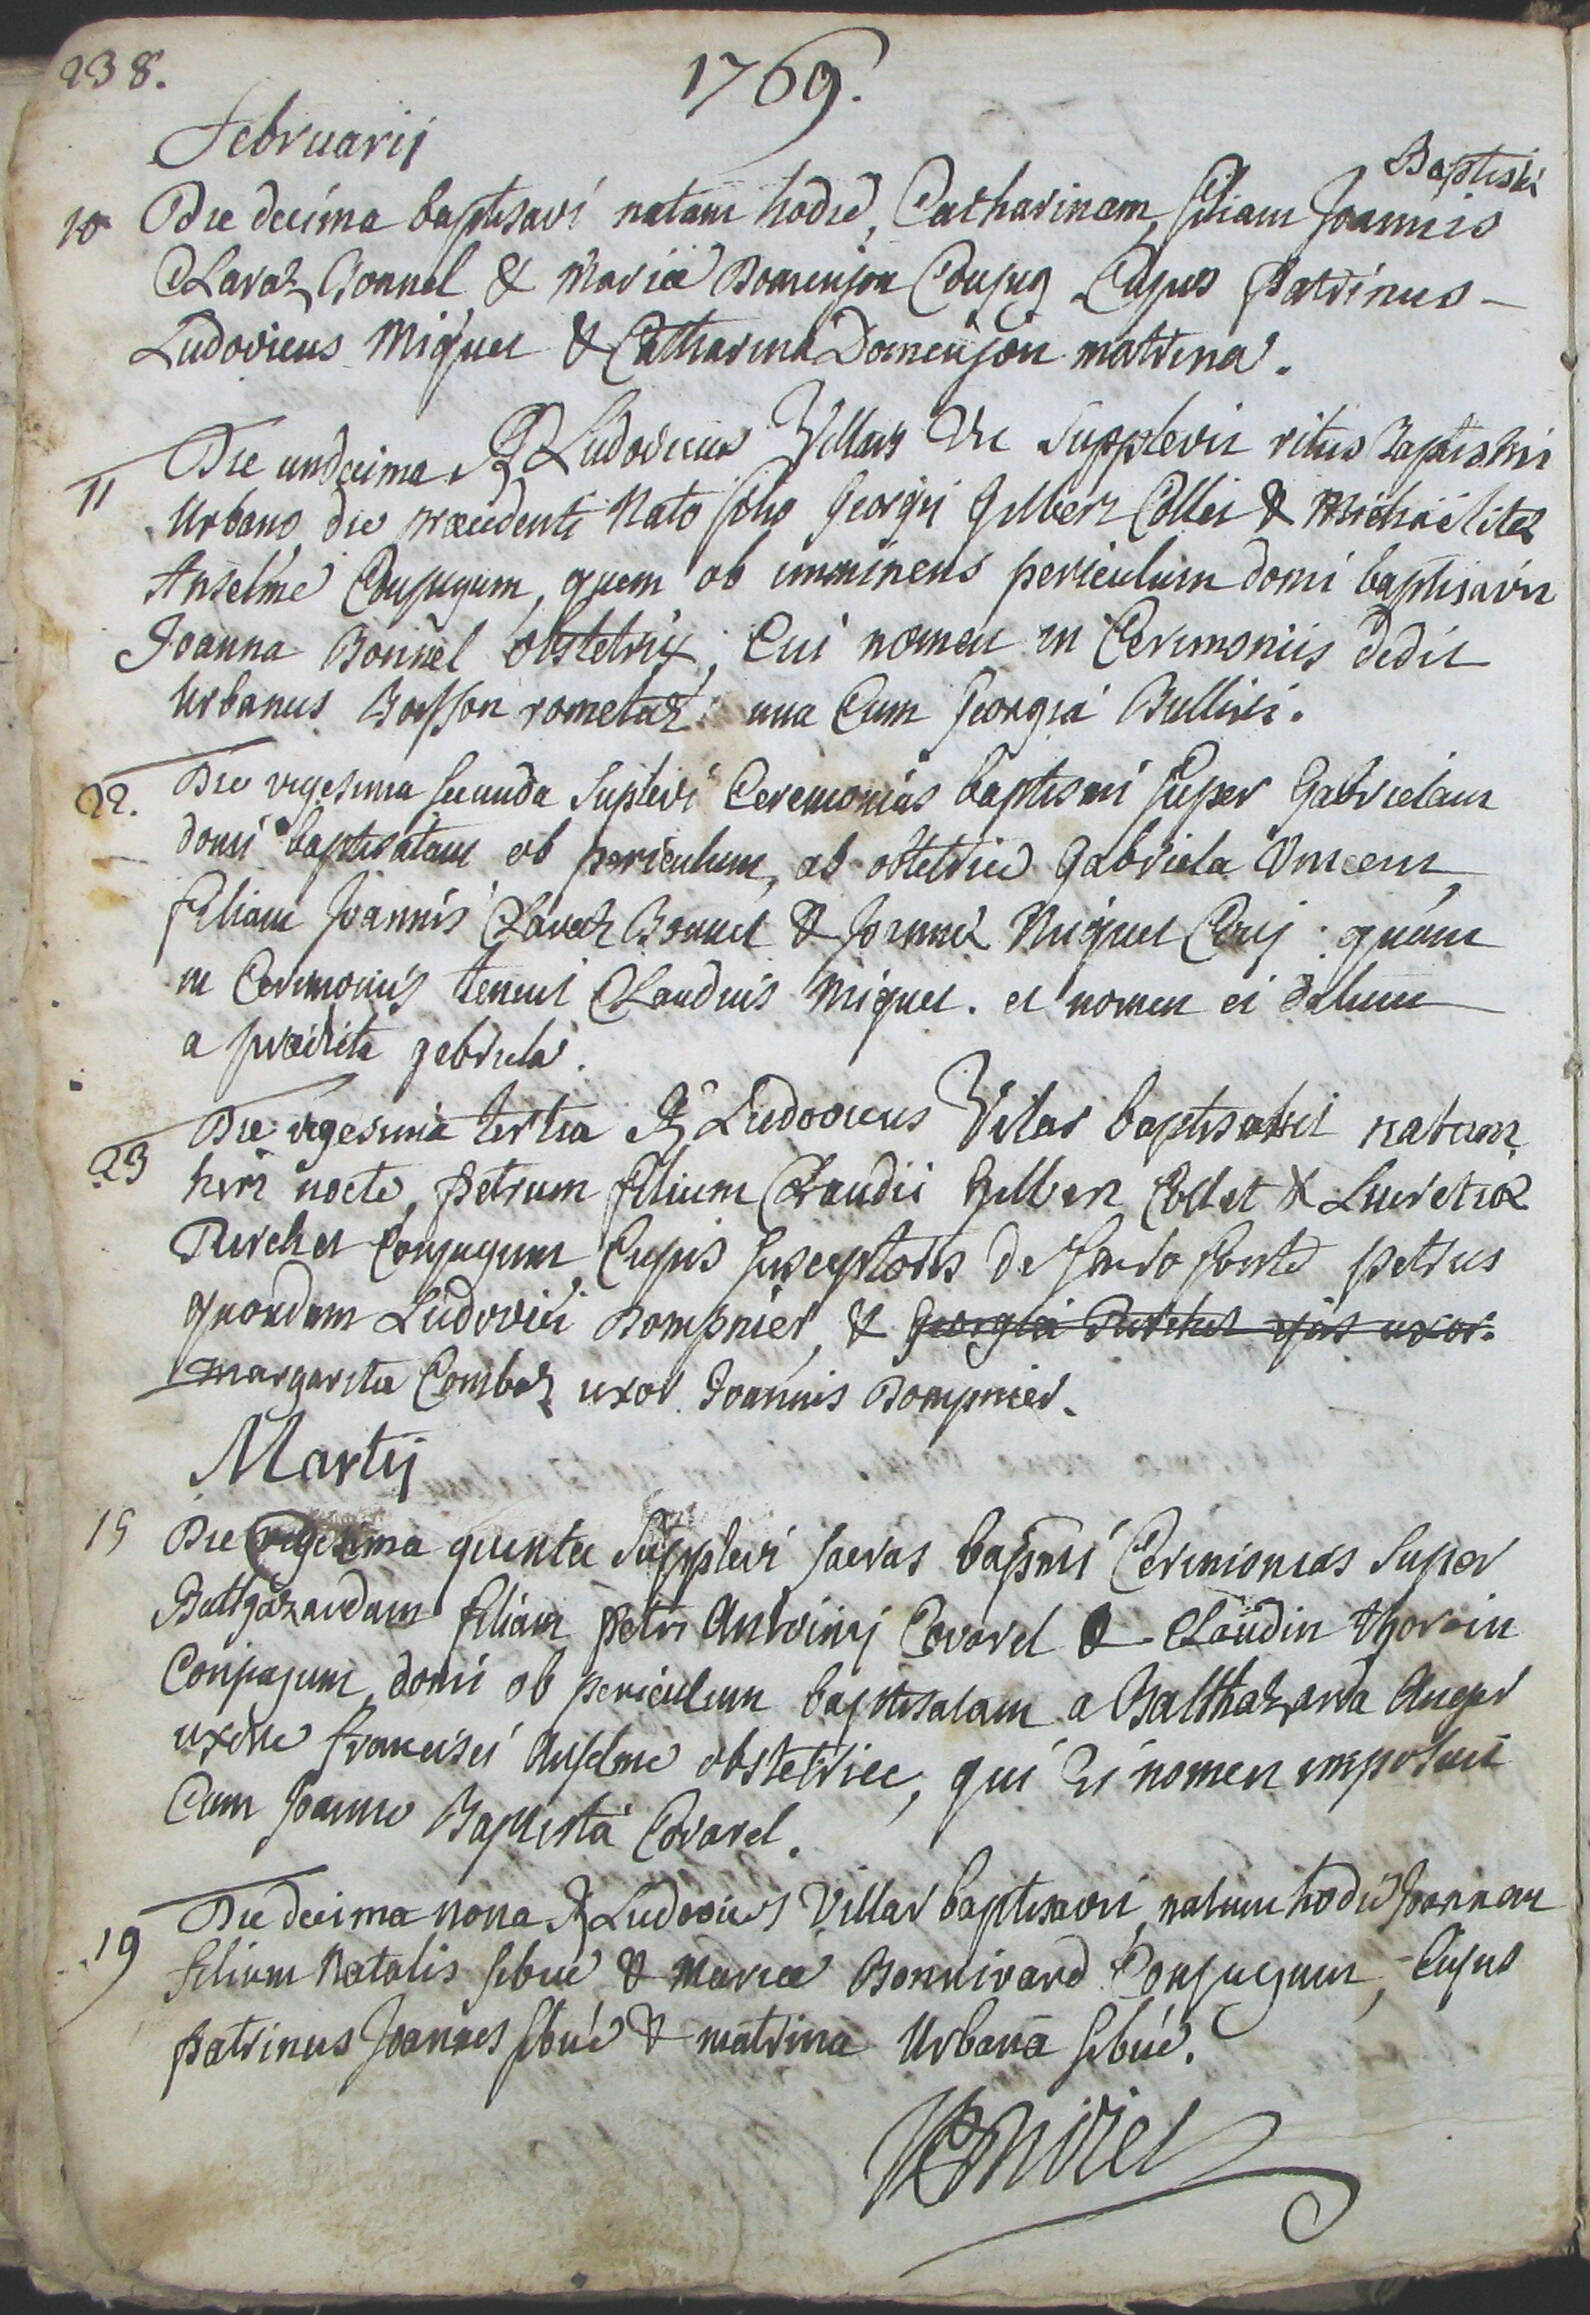 238.
1769.
Februarij
Baptistæ
10 Die decima baptisavi natam hodie, Catharinam, filiam Joannis
Claraz Bonnel & Mariæ Domenjon Conjug Cujus Patrinus
Ludovicus Miquet & Catharina Domenjon matrina.
11 Die undecima R Ludovicus Villar Vic supplevit ritus baptismi
Urbano die præcedenti nato filio Georgii Gilbert Collet & Michaëlitæ
Anselme Conjugum, quem ob imminens periculum domi baptisavit
Joanna Bonnel obstetrix, Cui nomen in Cerimoniis dedit
Urbanus Bosson rometaz una Cum Georgia Bullivi.
22. Die vigesima secunda suplevi Ceremonias baptismi super Gabrielam
domi baptisatam ob periculum, ab obstetrice Gabriela Vincent,
filiam Joannis Claraz Bonnel & Joannæ Miquet Conj. quam
in Cerimoniis tenuit Claudius Miquet. et nomen ei datum
a prædicta gabriela.
23 Die vigesima tertia R Ludovicus Vilar baptisavit natum
heri nocte, petrum filium Claudii Gilbert Collet & Lucretiæ
Durchet Conjugum, Cujus susceptores de sacro fonte petrus
quondam Ludovici Dompnier, & Georgia Durchet ejus uxor.
margarita Combaz uxor Joannis Dompnier.
Martij
15 Die vigesima quinta supplevi sacras bapsmi Cerimonias super
Baltazardam filiam petri Antonij Covarel & Claudin Thovoin
Conjugum, domi ob periculum baptisatam a Balthazarda Auger
uxore francisci Anselme obstetrice, qui Ei nomen imposuit
Cum Joanne Baptista Covarel.
19 Die decima nona R Ludovicus Villar baptisavit natum hodie Joannem
filium Natalis sibué & Mariæ Bonnivard Conjugum, Cujus
patrinus Joannes sibué & matrina Urbana sibué.